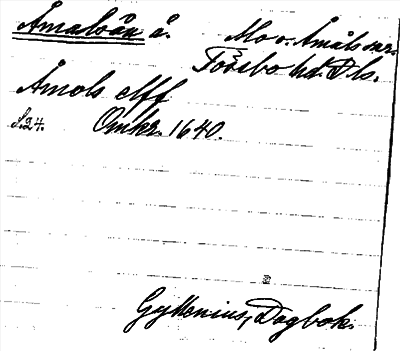 Åmalsån å. Mo o. Åmåls snr.
Tössbo hd. Dls.
Åmols elff
S.24. Omkr. 1640.
Gyllenius, Dagbok.